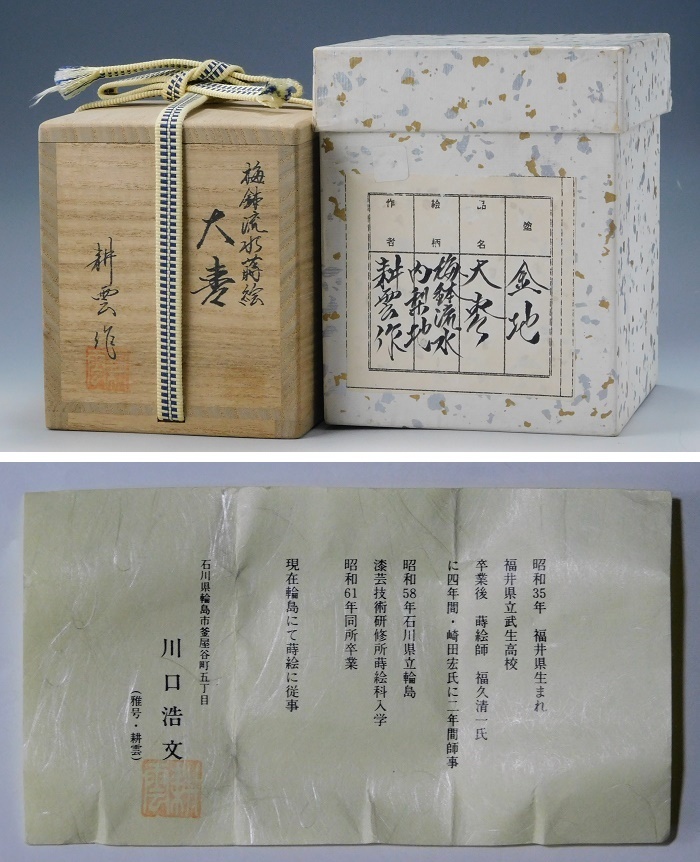 梅鉢流水蒔絵
大棗
耕雲作
塗
金地
品名
大棗
絵柄
梅鉢流水
内梨地
作者
耕雲作
昭和35年 福井県生まれ
福井県立武生高校
卒業後 蒔絵師 福久清一氏
に四年間・崎田宏氏に二年間師事
昭和58年石川県立輪島
漆芸技術研修所蒔絵科入学
昭和61年同所卒業
現在輪島にて蒔絵に従事
石川県輪島市釜屋谷町五丁目
川口浩文
(雅号・耕雲)